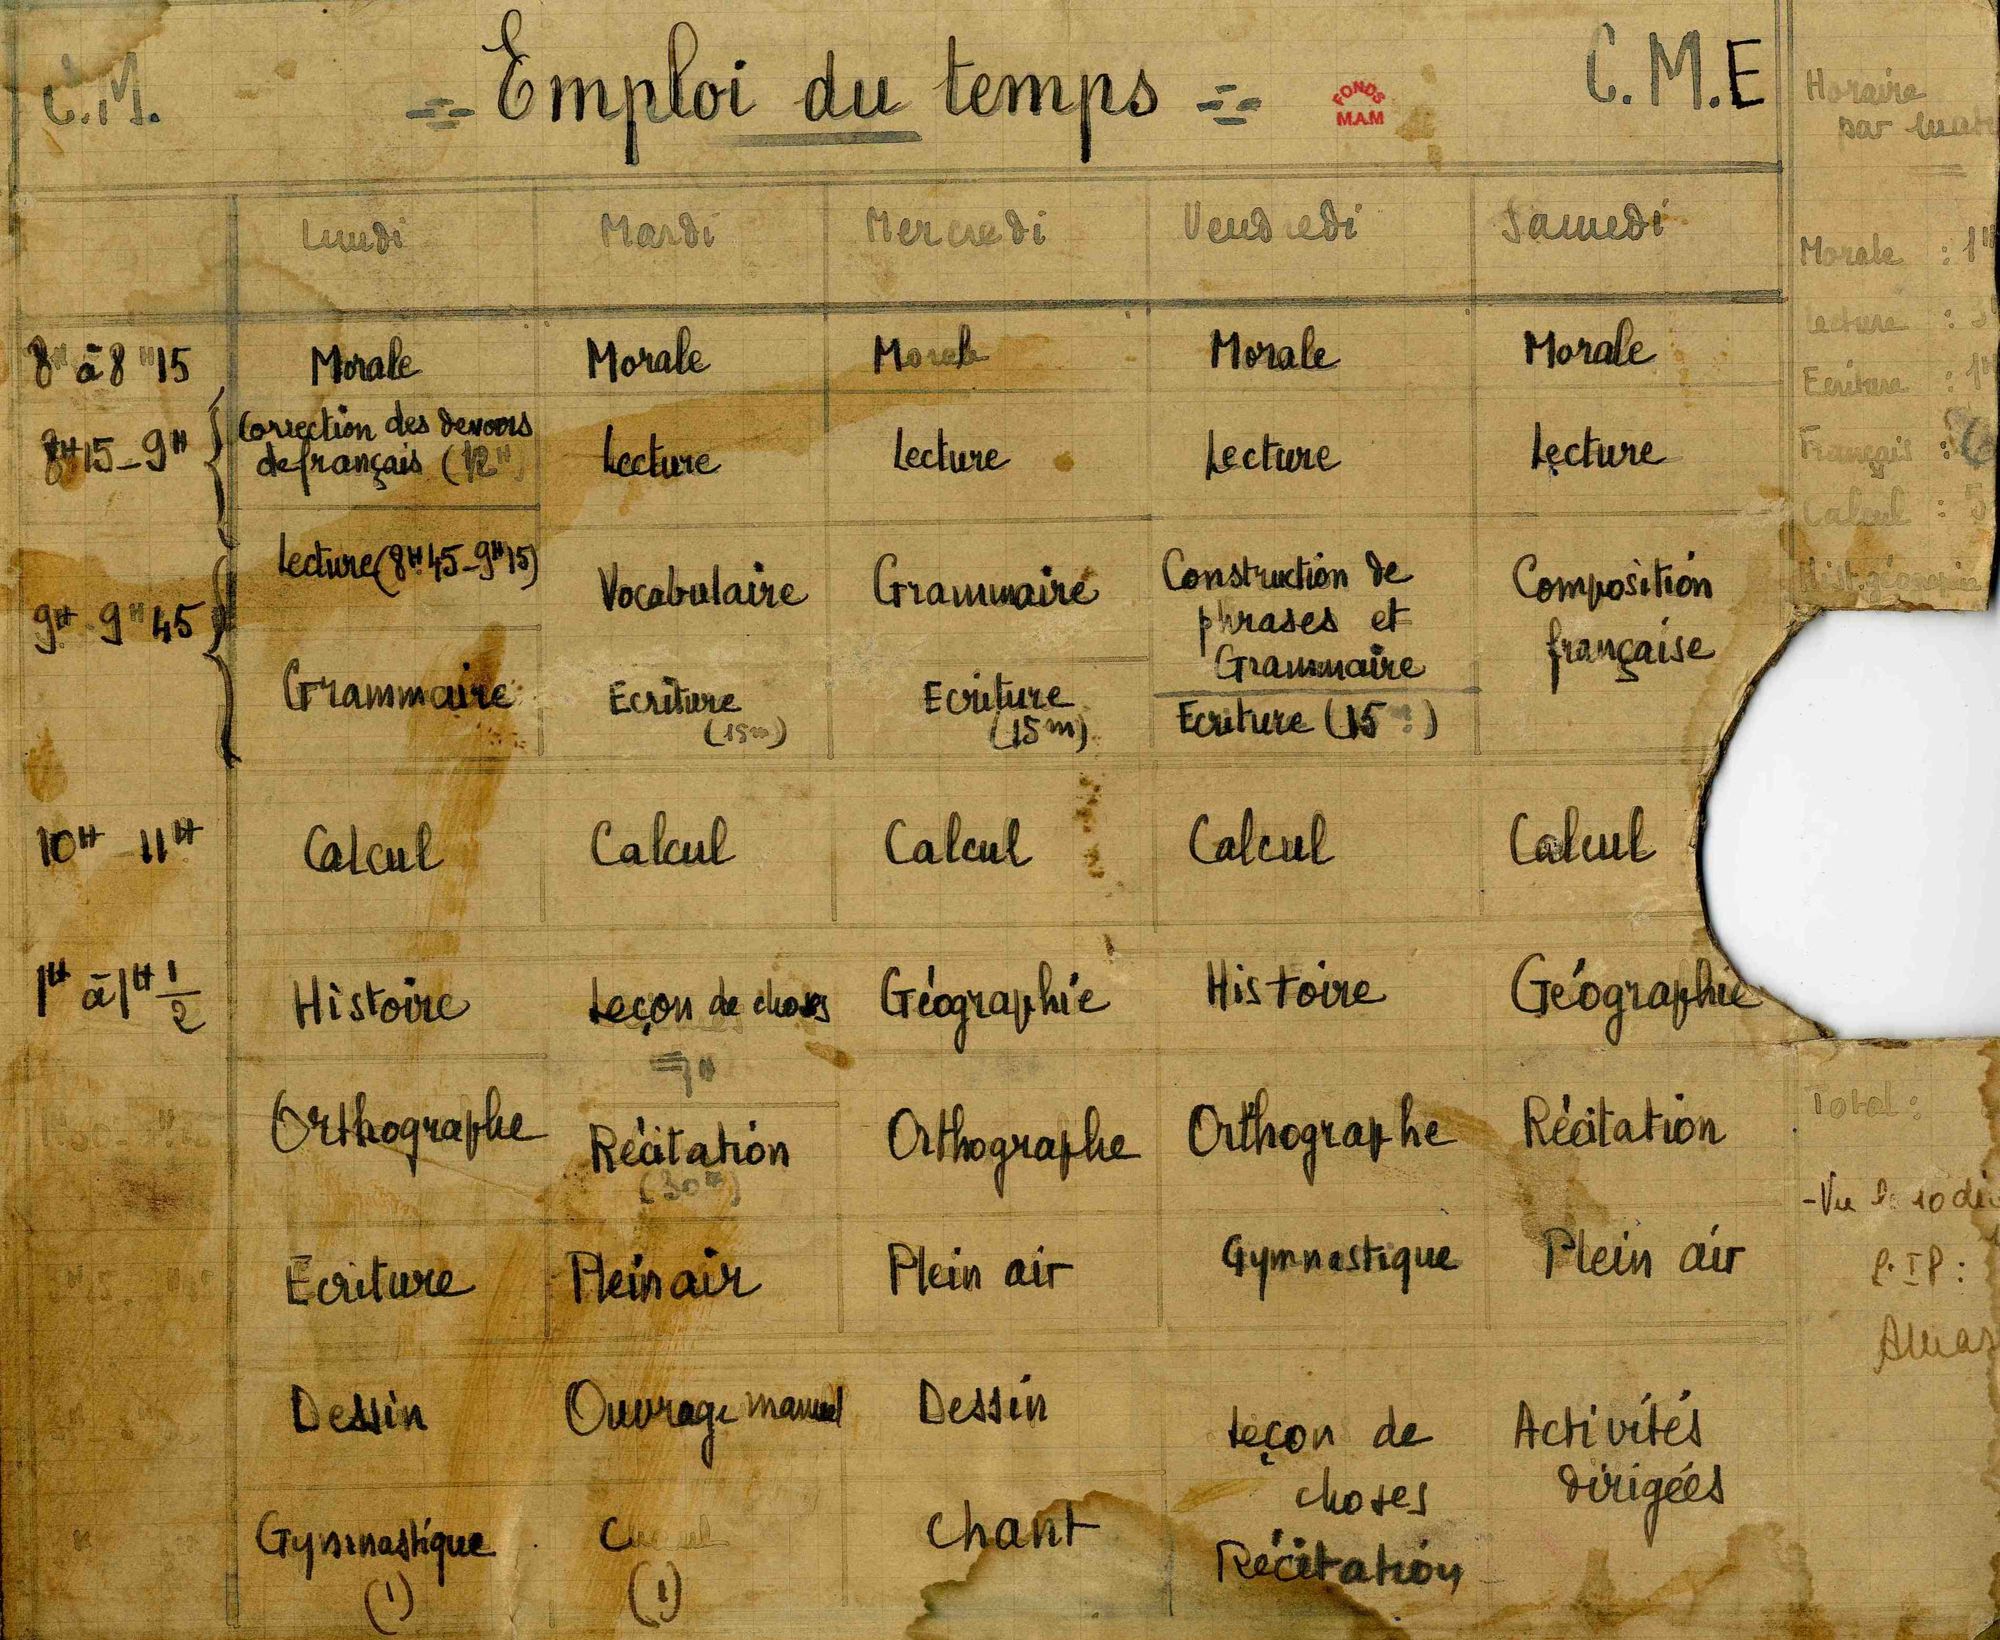 C.M.
Emploi du temps
FONDS
M.A.M
C.M.E
Horaire
par
Lundi Mardi Mercredi Vendredi Samedi
Morale : 1H
8H à 8H15 Morale Morale Morale Morale Morale
Lecture :
Ecriture : 1H
8H15-9H Correction des devoirs Lecture Lecture Lecture Lecture
de français
Français :
Calcul : 5
Lecture (8H45-9H15)
9H-9H45 Vocabulaire Grammaire Construction de Composition
phrases et française
Grammaire
Grammaire Ecriture Ecriture Ecriture (15
(15m) (15m)
10H-11H Calcul Calcul Calcul Calcul Calcul
1H à 1H 1/2 Histoire Leçon de choses Géographie Histoire Géographie
Orthographe Récitation Orthographe Orthographe Récitation
Total :
-Vu le 10
Ecriture Plein air Plein air Gymnastique Plein air
Dessin Ouvrage manuel Dessin Leçon de Activités
choses dirigées
Gymnastique chant Récitation
(1) (1)